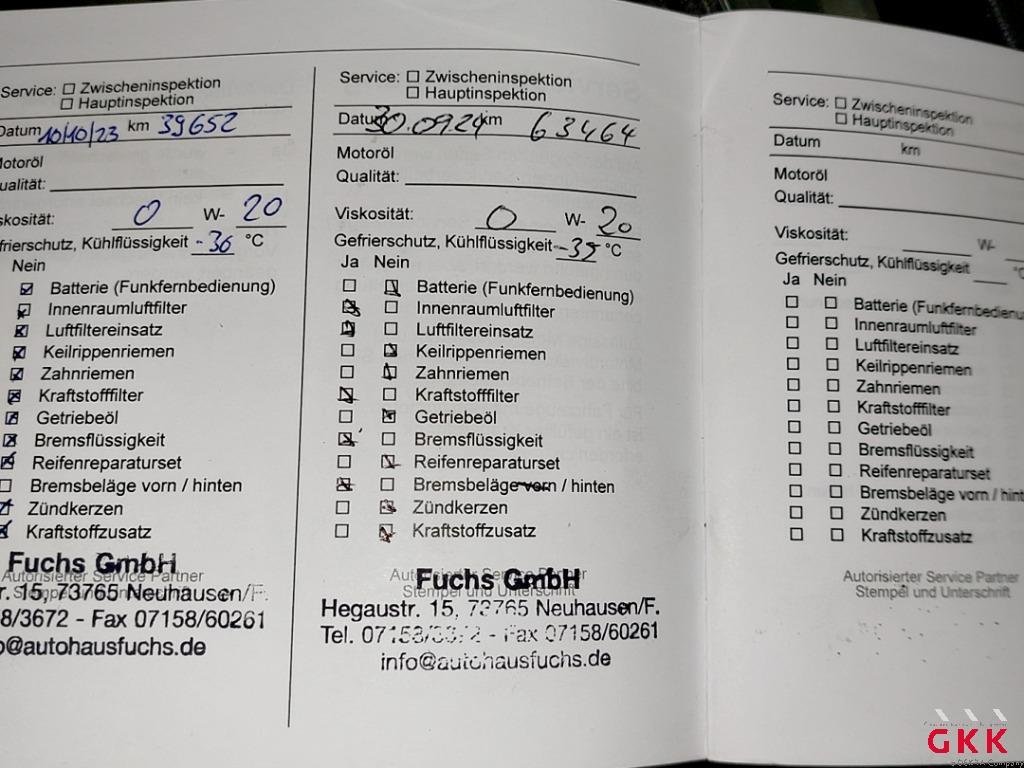 Service: ☐ Zwischeninspektion
☐ Hauptinspektion
Datum 10/10/23 km 39652
Motoröl
Qualität:
Viskosität: 0 W- 20
Gefrierschutz, Kühlflüssigkeit -36 °C
Nein
Batterie (Funkfernbedienung)
Innenraumluftfilter
Luftfiltereinsatz
Keilrippenriemen
Zahnriemen
Kraftstofffilter
Getriebeöl
Bremsflüssigkeit
Reifenreparaturset
Bremsbeläge vorn / hinten
Zündkerzen
Kraftstoffzusatz
Fuchs GmbH
Autorisierter Service Partner
Stempel und Unterschrift
r. 15, 73765 Neuhausen/F.
8/3672 - Fax 07158/60261
o@autohausfuchs.de
Service: ☐ Zwischeninspektion
☐ Hauptinspektion
Datum 30.09.24 km 63464
Motoröl
Qualität:
Viskosität: 0 W- 20
Gefrierschutz, Kühlflüssigkeit -35 °C
Ja Nein
Batterie (Funkfernbedienung)
Innenraumluftfilter
Luftfiltereinsatz
Keilrippenriemen
Zahnriemen
Kraftstofffilter
Getriebeöl
Bremsflüssigkeit
Reifenreparaturset
Bremsbeläge vorn / hinten
Zündkerzen
Kraftstoffzusatz
Autorisierter Service Partner
Fuchs GmbH
Stempel und Unterschrift
Hegaustr. 15, 73765 Neuhausen/F.
Tel. 07158/3672 - Fax 07158/60261
info@autohausfuchs.de
Service: ☐ Zwischeninspektion
☐ Hauptinspektion
Datum km
Motoröl
Qualität:
Viskosität: W-
Gefrierschutz, Kühlflüssigkeit °C
Ja Nein
Batterie (Funkfernbedienu
Innenraumluftfilter
Luftfiltereinsatz
Keilrippenriemen
Zahnriemen
Kraftstofffilter
Getriebeöl
Bremsflüssigkeit
Reifenreparaturset
Bremsbeläge vorn / hint
Zündkerzen
Kraftstoffzusatz
Autorisierter Service Partner
Stempel und Unterschrift
GKK